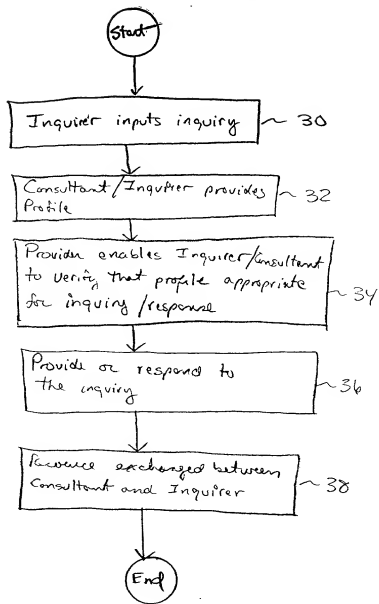 Start
Inquirer inputs inquiry
30
Consultant/Inquirer provides
Profile
32
Provider enables Inquirer/Consultant
to verify that profile appropriate
for inquiry/response
34
Provide or respond to
the inquiry
36
exchanged between
Consultant and Inquirer
38
End